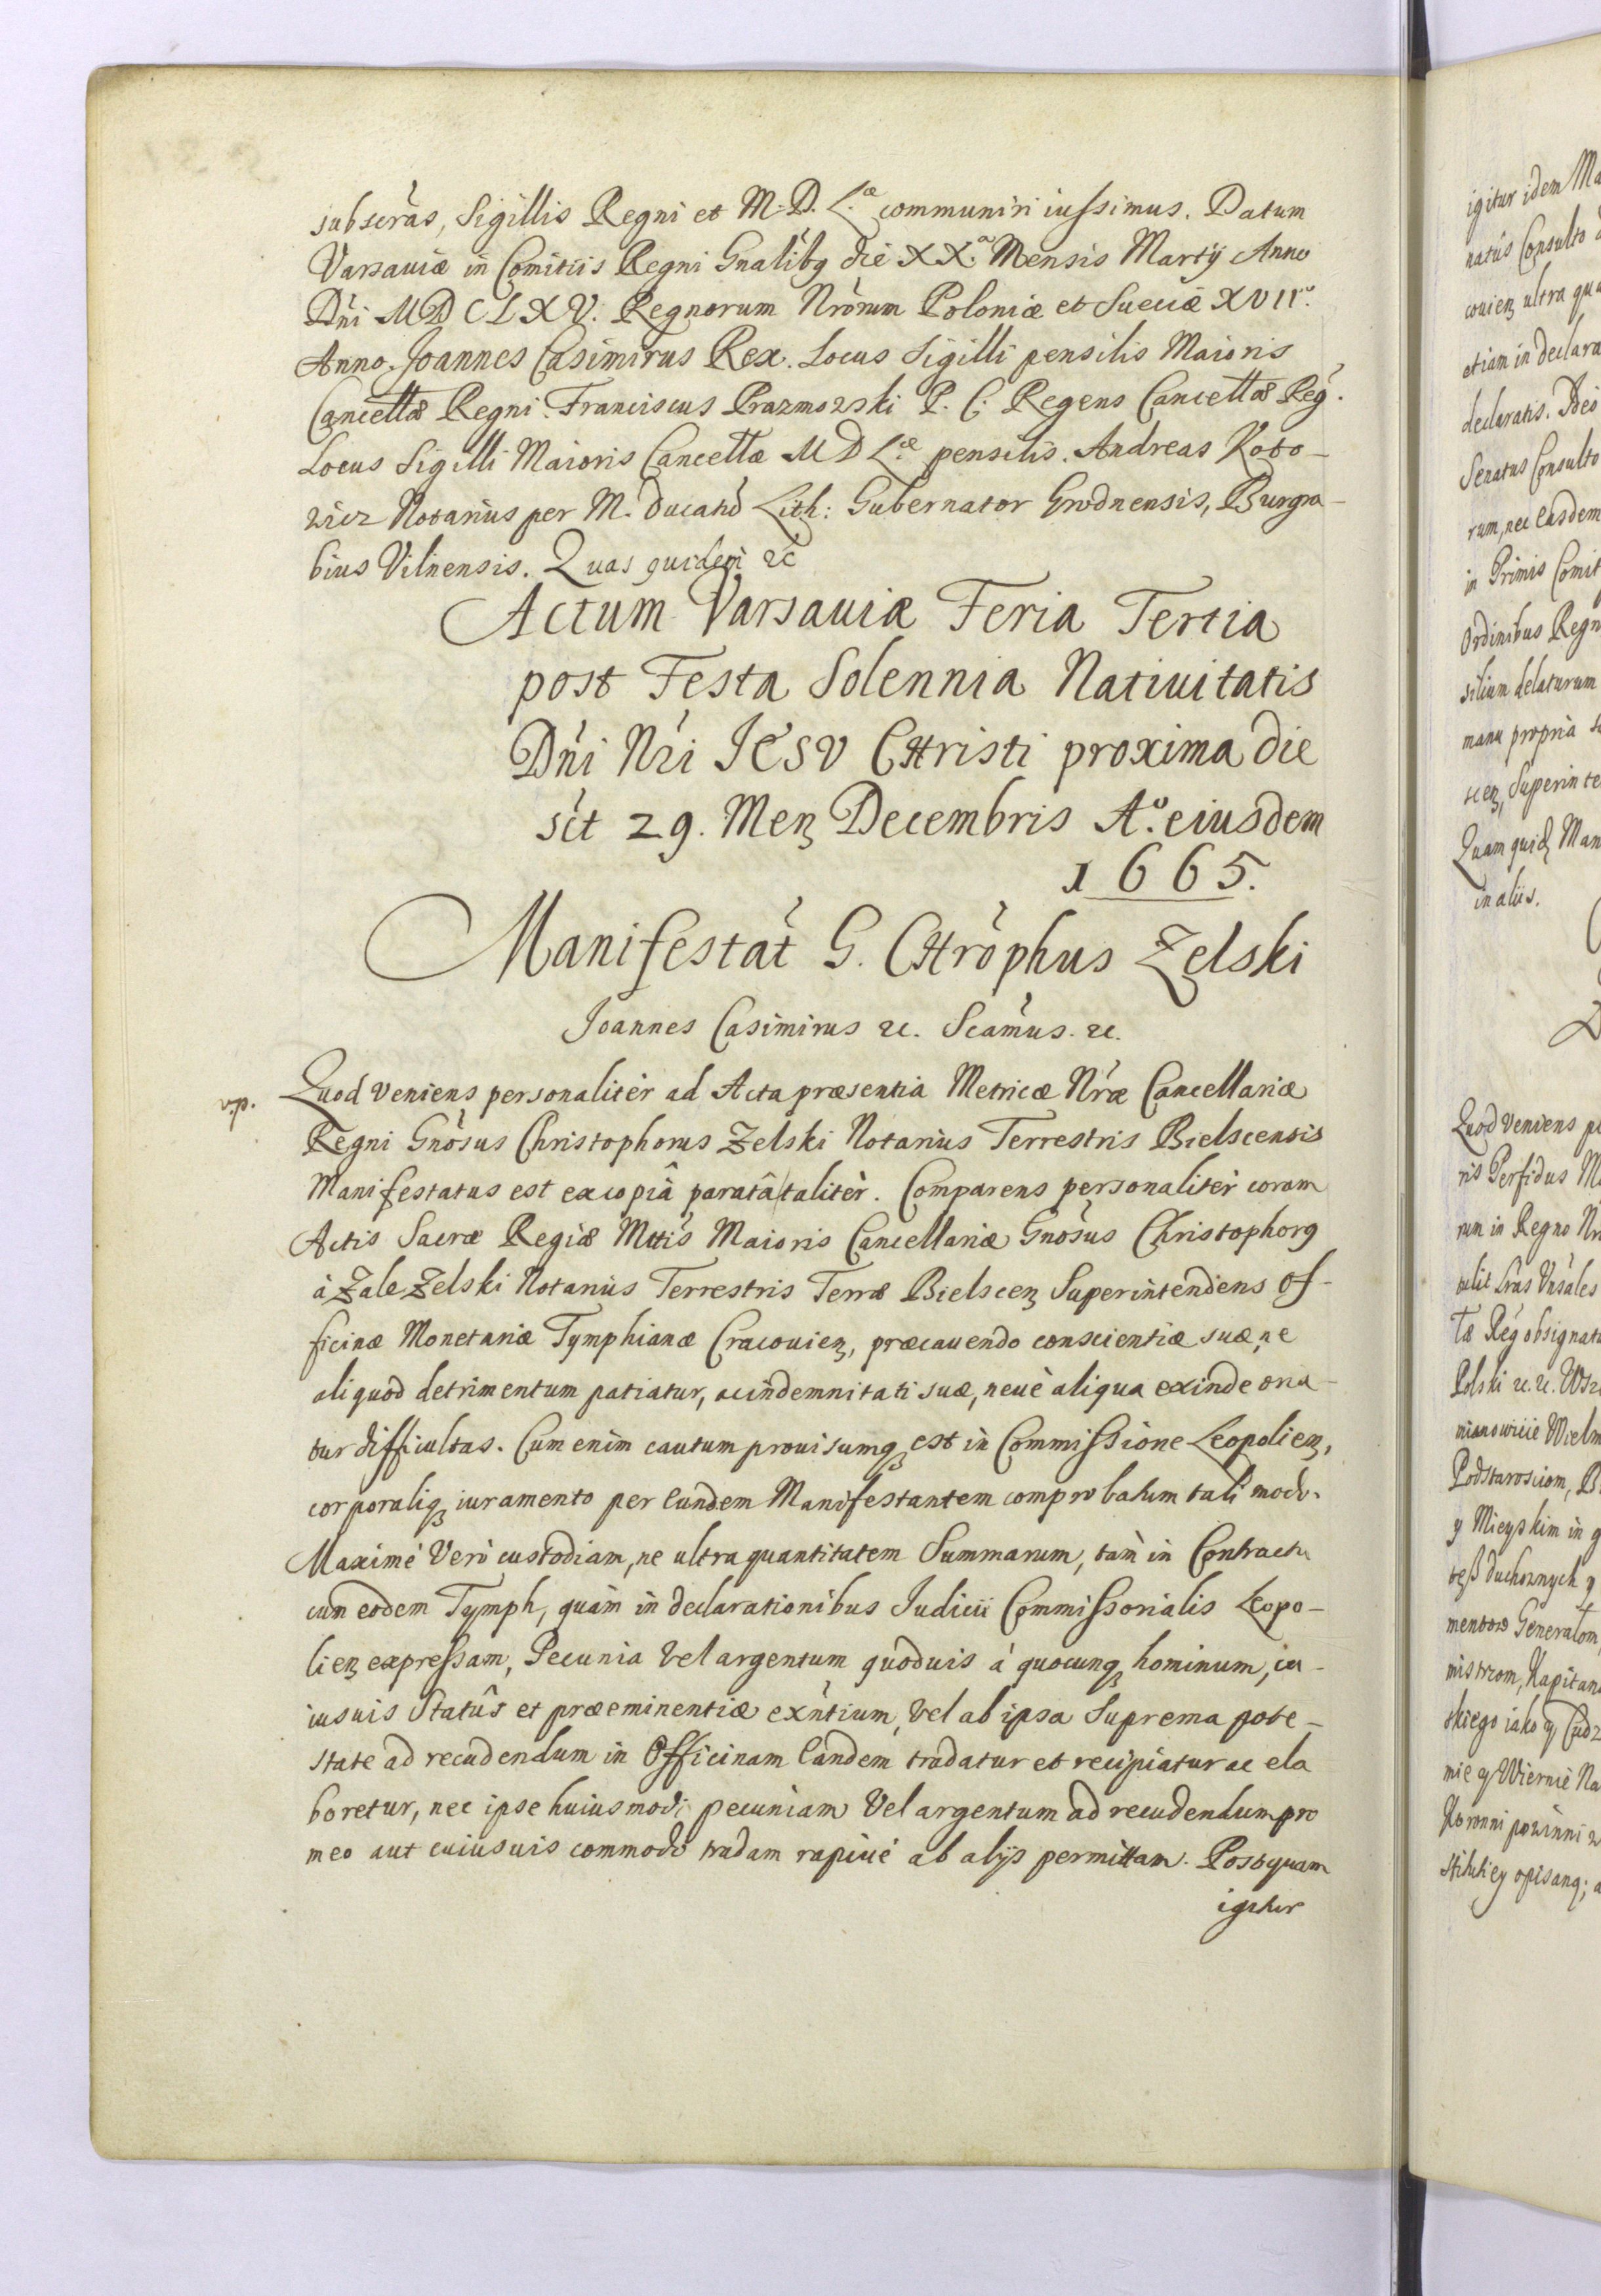 subscrãs, Sigillis Regni et M. D. L.æ communiri iussimus. Datum
Varsauiæ in Comitiis Regni Gnalibq die XX.a Mensis Martij Anno
Dñi MDCLXV. Regnorum Nrõrum Poloniæ et Sueciæ XVII.o
Anno. Joannes Casimirus Rex. Locus Sigilli pensilis Maioris
Cancellæ Regni. Franciscus Prazmowski P. C. Regens Cancellæ Reg.
Locus Sigilli Maioris Cancellæ M D L.æ pensilis. Andreas Koto-
wicz Notarius per M. Ducatũ Lith: Gubernator Grodnensis, Burgra-
bius Vilnensis. Quas quidem &c
Actum Varsauiæ Feria Tertia
post Festa Solennia Natiuitatis
Dñi Nri JESV CHristi proxima die
sct 29. Menʒ Decembris A.o eiusdem
1665.
Manifestat G. CHrophus Zelski
Joannes Casimirus &c. Scamus. &c.
v.p. Quod veniens personaliter ad Acta præsentia Metricæ Nræ Cancellariæ
Regni Gnosus Christophorus Zelski Notarius Terrestris Bielscensis
Manifestatus est ex copiâ paratâ taliter. Comparens personaliter coram
Actis Sacræ Regiæ Mttis Maioris Cancellariæ Gnosus Christophorq
à Zale Zelski Notarius Terrestris Terræ Bielscenʒ Superintendens Of-
ficinæ Monetariæ Tymphianæ Cracouienʒ, præcauendo conscientiæ suæ, ne
aliquod detrimentum patiatur, ac indemnitati suæ, neuè aliqua exinde oria-
tur difficultas. Cum enim cautum prouisumqʒ est in Commissione Leopolienʒ,
corporaliqʒ iuramento per eundem Manifestantem comprobatum tali modo.
Maximè Verò custodiam, ne ultra quantitatem Summarum, tàm in Contractu
cum eodem Tymph, quàm in declarationibus Judicii Commissorialis Leopo-
lienʒ expressam, Pecunia vel argentum quoduis à quocunqʒ hominum, cu-
iusuis Statûs et præeminentiæ exntium, vel ab ipsa Suprema pote-
state ad recudendum in Officinam eandem tradatur et recipiatur ac ela
boretur, nec ipse huiusmodi pecuniam Vel argentum ad recudendum pro
meo aut cuiusuis commodo tradam rapiué ab alijs permittam. Postquam
igitur
igitur idem
Consulto
ultra
etiam in declara
declaratis.
Senatus Consulto
rum, nec easdem
in Primis Comit
Ordinibus Regn
silium delaturum
manu propria
Superinte
Quam quidʒ Man
in aliis.
Quod veniens
Perfidus
rum in Regno
Reg obsignat
Polski &c. &c.
y Mieyskim in
duchownych y
skiego iako y Cudz
mie y Wiernie Na
Koronni powinni